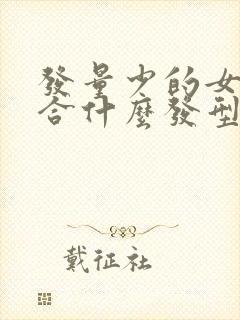 發量少的女
合什麼發型
戴征社